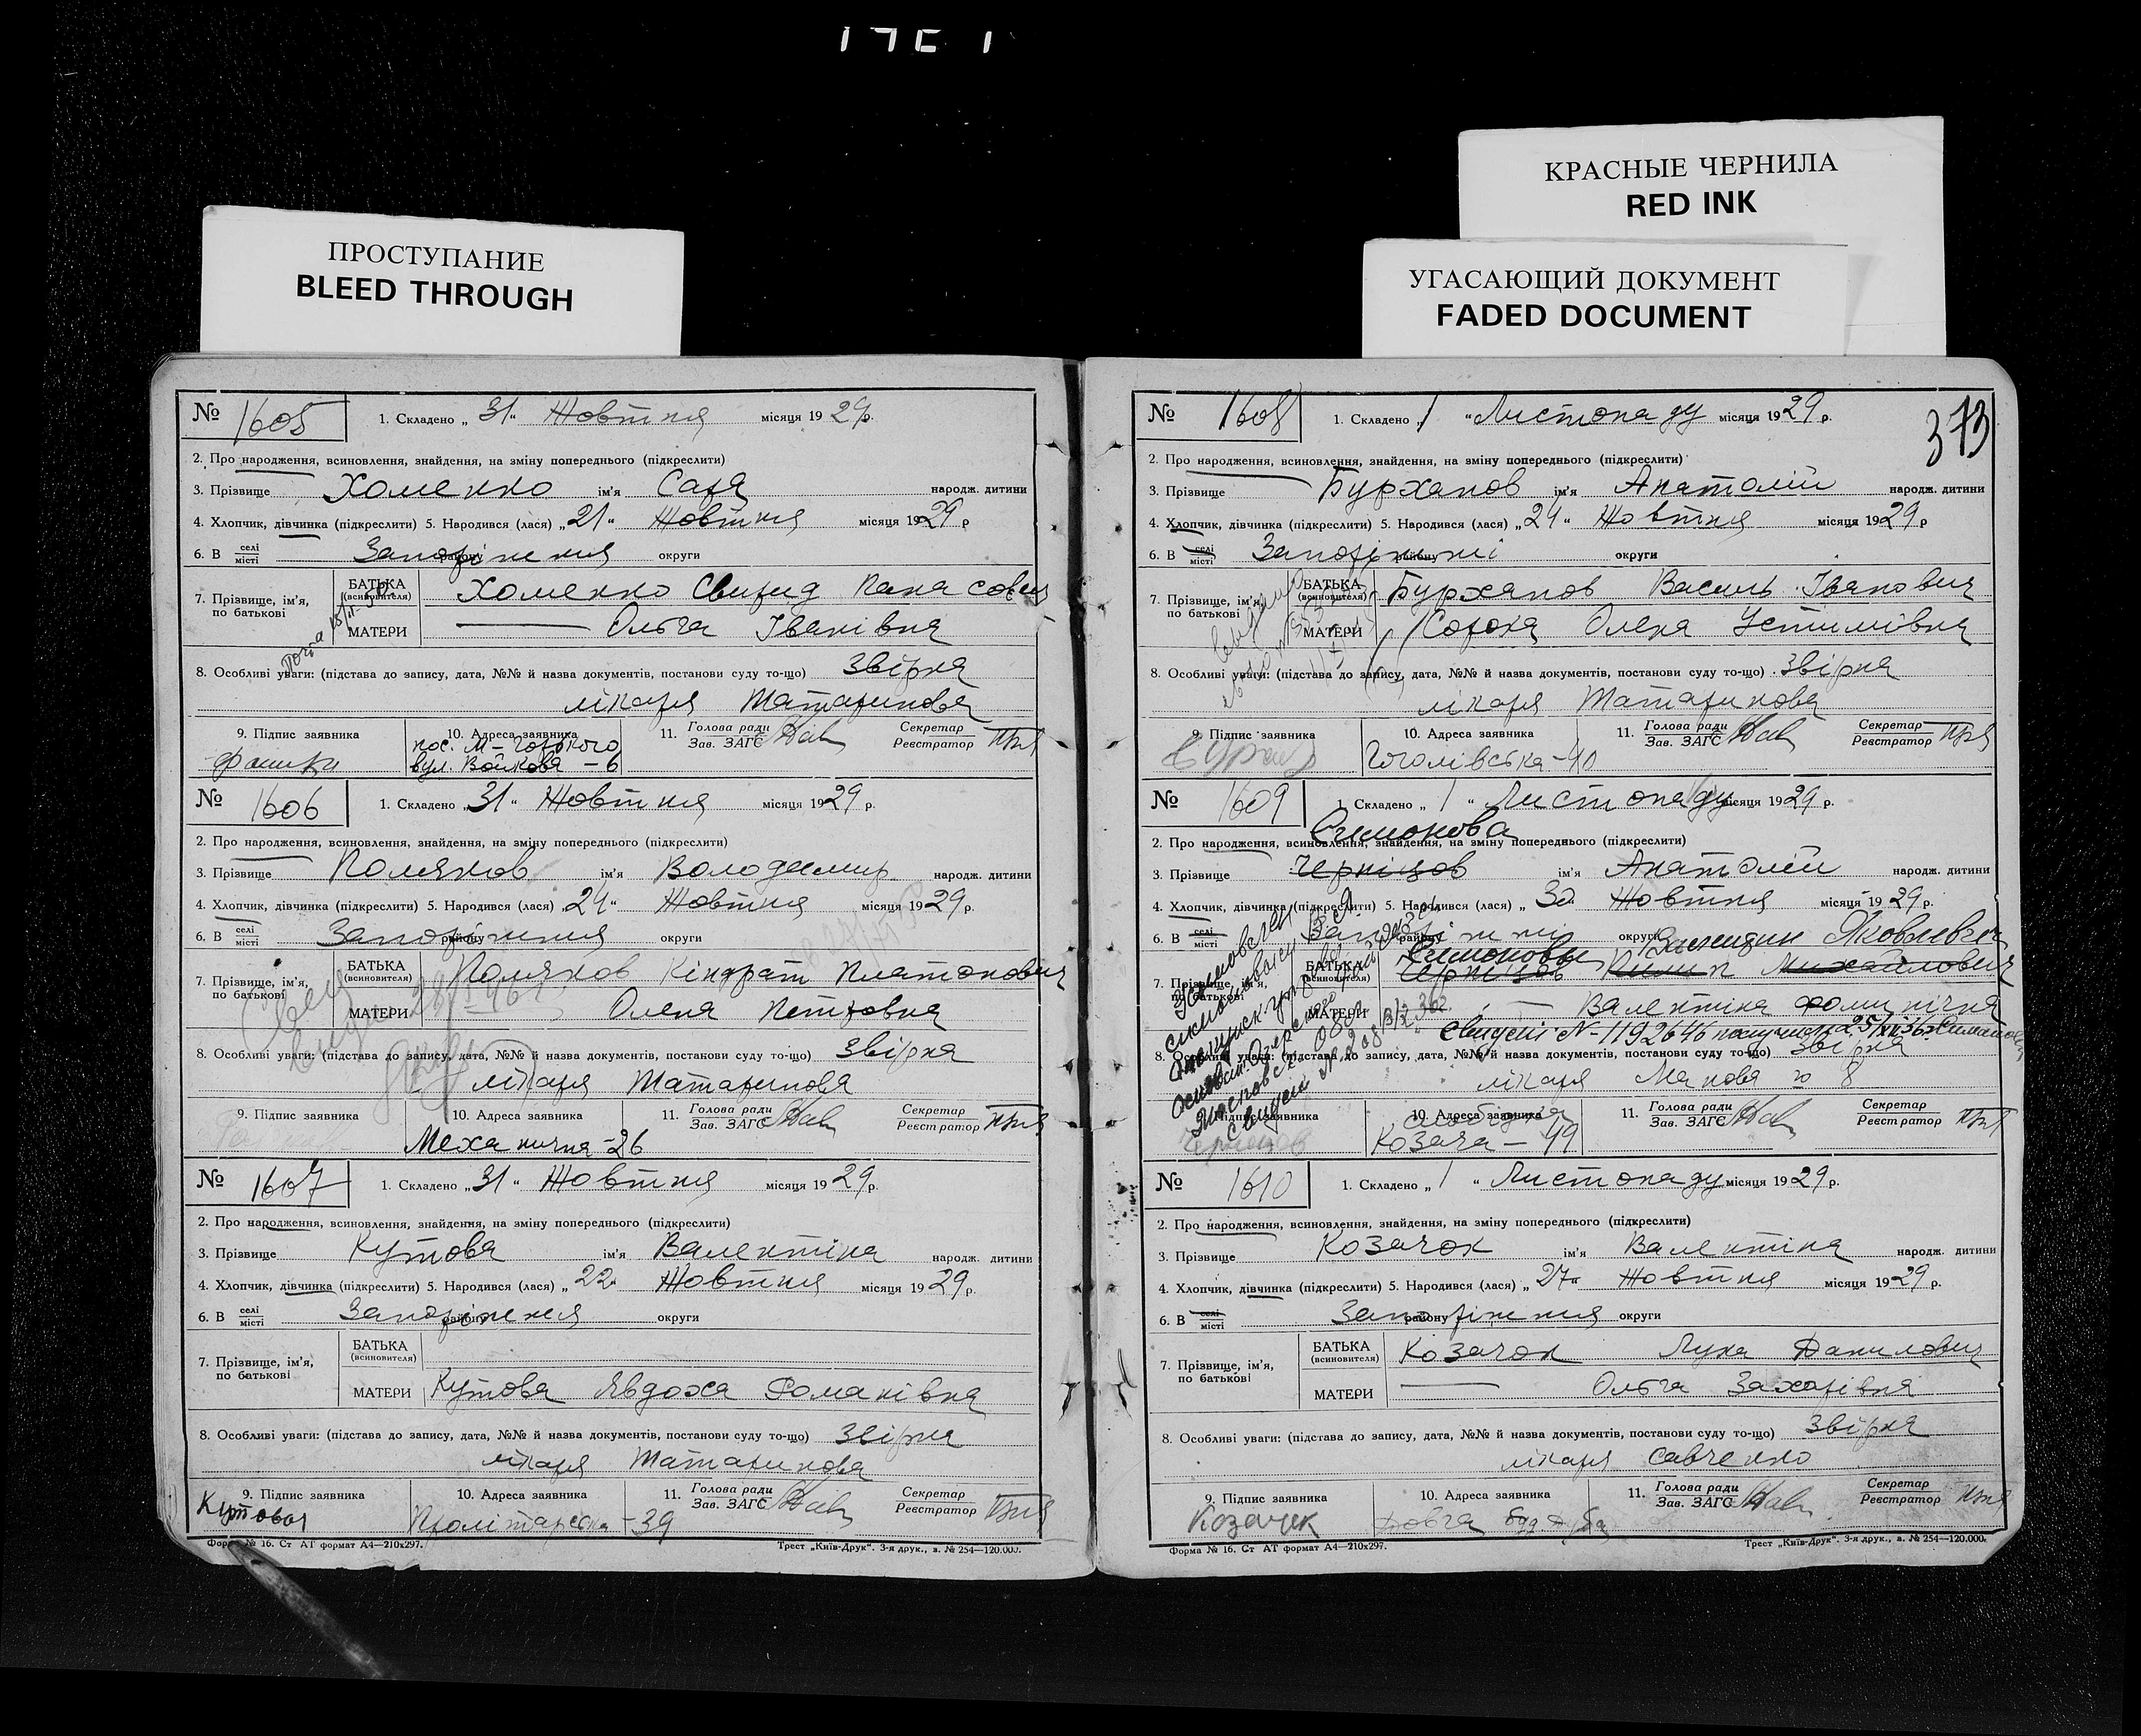 КРАСНЫЕ ЧЕРНИЛА
RED INK
ПРОСТУПАНИЕ
BLEED THROUGH
УГАСАЮЩИЙ ДОКУМЕНТ
FADED DOCUMENT
№ 1605 1. Складено „ 31 “ Жовтня місяця 19 29 р.
2. Про народження, всиновлення, знайдення, на зміну попереднього (підкреслити)
3. Прізвище Хоменко ім'я Сара народж. дитини
4. Хлопчик, дівчинка (підкреслити) 5. Народився (лася) „ 21 “ Жовтня місяця 19 29 р
6. В селі місті Запоріжжя району округи
7. Прізвище, ім'я, по батькові
БАТЬКА (всиновителя) Хоменко Свирид Панасович
МАТЕРИ Ольга Іванівна
8. Особливі уваги: (підстава до запису, дата, №№ й назва документів, постанови суду то-що) Звірка
лікаря Татаринова
9. Підпис заявника 10. Адреса заявника 11. Голова ради Зав. ЗАГС Секретар Реєстратор
пос. М-Горького
вул. Войкова - 6
№ 1606 1. Складено „ 31 “ Жовтня місяця 19 29 р.
2. Про народження, всиновлення, знайдення, на зміну попереднього (підкреслити)
3. Прізвище Поляков ім'я Володимир народж. дитини
4. Хлопчик, дівчинка (підкреслити) 5. Народився (лася) „ 24 “ Жовтня місяця 19 29 р.
6. В селі місті Запоріжжя району округи
7. Прізвище, ім'я, по батькові
БАТЬКА (всиновителя) Поляков Кіндрат Платонович
МАТЕРИ Олена Петровна
8. Особливі уваги: (підстава до запису, дата, №№ й назва документів, постанови суду то-що) Звірка
лікаря Татаринова
9. Підпис заявника 10. Адреса заявника 11. Голова ради Зав. ЗАГС Секретар Реєстратор
Механична - 26
№ 1607 1. Складено „ 31 “ Жовтня місяця 19 29 р.
2. Про народження, всиновлення, знайдення, на зміну попереднього (підкреслити)
3. Прізвище Кутова ім'я Валентіна народж. дитини
4. Хлопчик, дівчинка (підкреслити) 5. Народився (лася) „ 22 “ Жовтня місяця 19 29 р.
6. В селі місті Запоріжжя району округи
7. Прізвище, ім'я, по батькові
БАТЬКА (всиновителя)
МАТЕРИ Кутова Явдоха Романівна
8. Особливі уваги: (підстава до запису, дата, №№ й назва документів, постанови суду то-що) Звірка
лікаря Татаринова
9. Підпис заявника 10. Адреса заявника 11. Голова ради Зав. ЗАГС Секретар Реєстратор
Кутова Пролітарська - 39
Форма № 16. Ст АТ формат А4—210х297. Трест „Київ-Друк“. 3-я друк., в. № 254—120.000.
373
№ 1608 1. Складено „ 1 “ Листопаду місяця 19 29 р.
2. Про народження, всиновлення, знайдення, на зміну попереднього (підкреслити)
3. Прізвище Бурханов ім'я Анатолій народж. дитини
4. Хлопчик, дівчинка (підкреслити) 5. Народився (лася) „ 24 “ Жовтня місяця 19 29 р
6. В селі місті Запоріжжі району округи
7. Прізвище, ім'я, по батькові
БАТЬКА (всиновителя) Бурханов Василь Іванович
МАТЕРИ Сорока Олена Устимівна
8. Особливі уваги: (підстава до запису, дата, №№ й назва документів, постанови суду то-що) Звірка
лікаря Татаринова
9. Підпис заявника 10. Адреса заявника 11. Голова ради Зав. ЗАГС Секретар Реєстратор
Гоголівська - 40
№ 1609 1. Складено „ 1 “ Листопаду місяця 19 29 р.
Симонова
2. Про народження, всиновлення, знайдення, на зміну попереднього (підкреслити)
3. Прізвище Чернізов ім'я Анатолій народж. дитини
4. Хлопчик, дівчинка (підкреслити) 5. Народився (лася) „ 30 Жовтня місяця 19 29 р.
6. В селі місті Запоріжжя району округи
Яковлевич
7. Прізвище, ім'я, по батькові
Симоновы
БАТЬКА (всиновителя) Чернізов Михайлович
МАТЕРИ Валентіна Фоминічна
8. Особливі уваги: (підстава до запису, дата, №№ й назва документів, постанови суду то-що) Звірка
лікаря Макова № 8
9. Підпис заявника 10. Адреса заявника 11. Голова ради Зав. ЗАГС Секретар Реєстратор
Козача - 49
№ 1610 1. Складено „ 1 “ Листопаду місяця 19 29 р.
2. Про народження, всиновлення, знайдення, на зміну попереднього (підкреслити)
3. Прізвище Козачок ім'я Валентіна народж. дитини
4. Хлопчик, дівчинка (підкреслити) 5. Народився (лася) „ 27 “ Жовтня місяця 19 29 р.
6. В селі місті Запоріжжя району округи
7. Прізвище, ім'я, по батькові
БАТЬКА (всиновителя) Козачок Лука Данилович
МАТЕРИ Ольга Захарівна
8. Особливі уваги: (підстава до запису, дата, №№ й назва документів, постанови суду то-що) Звірка
лікаря Савченко
9. Підпис заявника 10. Адреса заявника 11. Голова ради Зав. ЗАГС Секретар Реєстратор
Козачек
Форма № 16. Ст АТ формат А4—210х297. Трест „Київ-Друк“. 3-я друк., в. № 254—120.000.